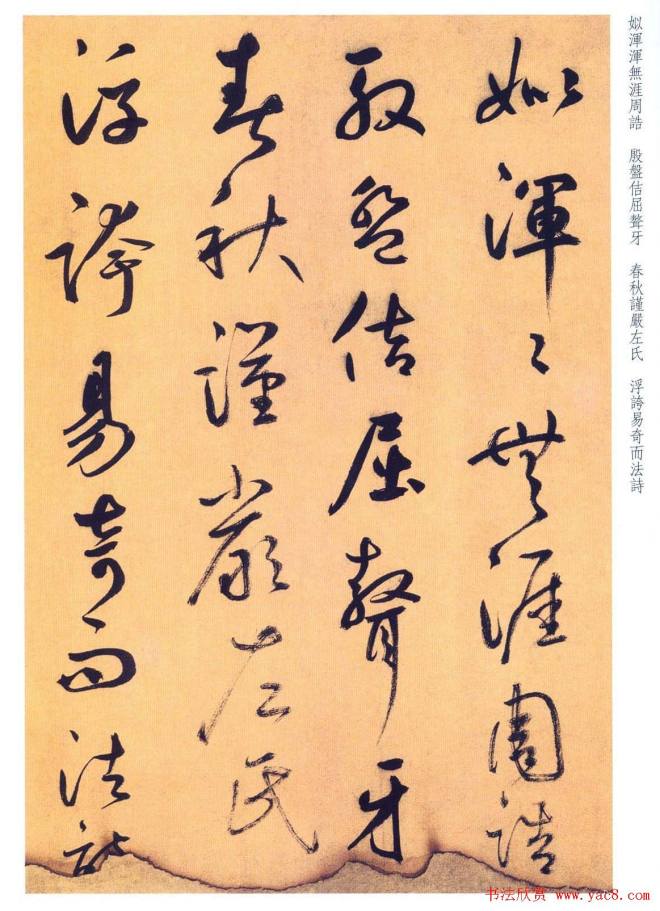 姒渾渾無涯周誥　殷盤佶屈聱牙　春秋謹嚴左氏　浮誇易奇而法詩
姒渾〻無涯周誥
殷盤佶屈聱牙
春秋謹嚴左氏
浮誇易奇而法詩
书法欣赏 www.yac8.com